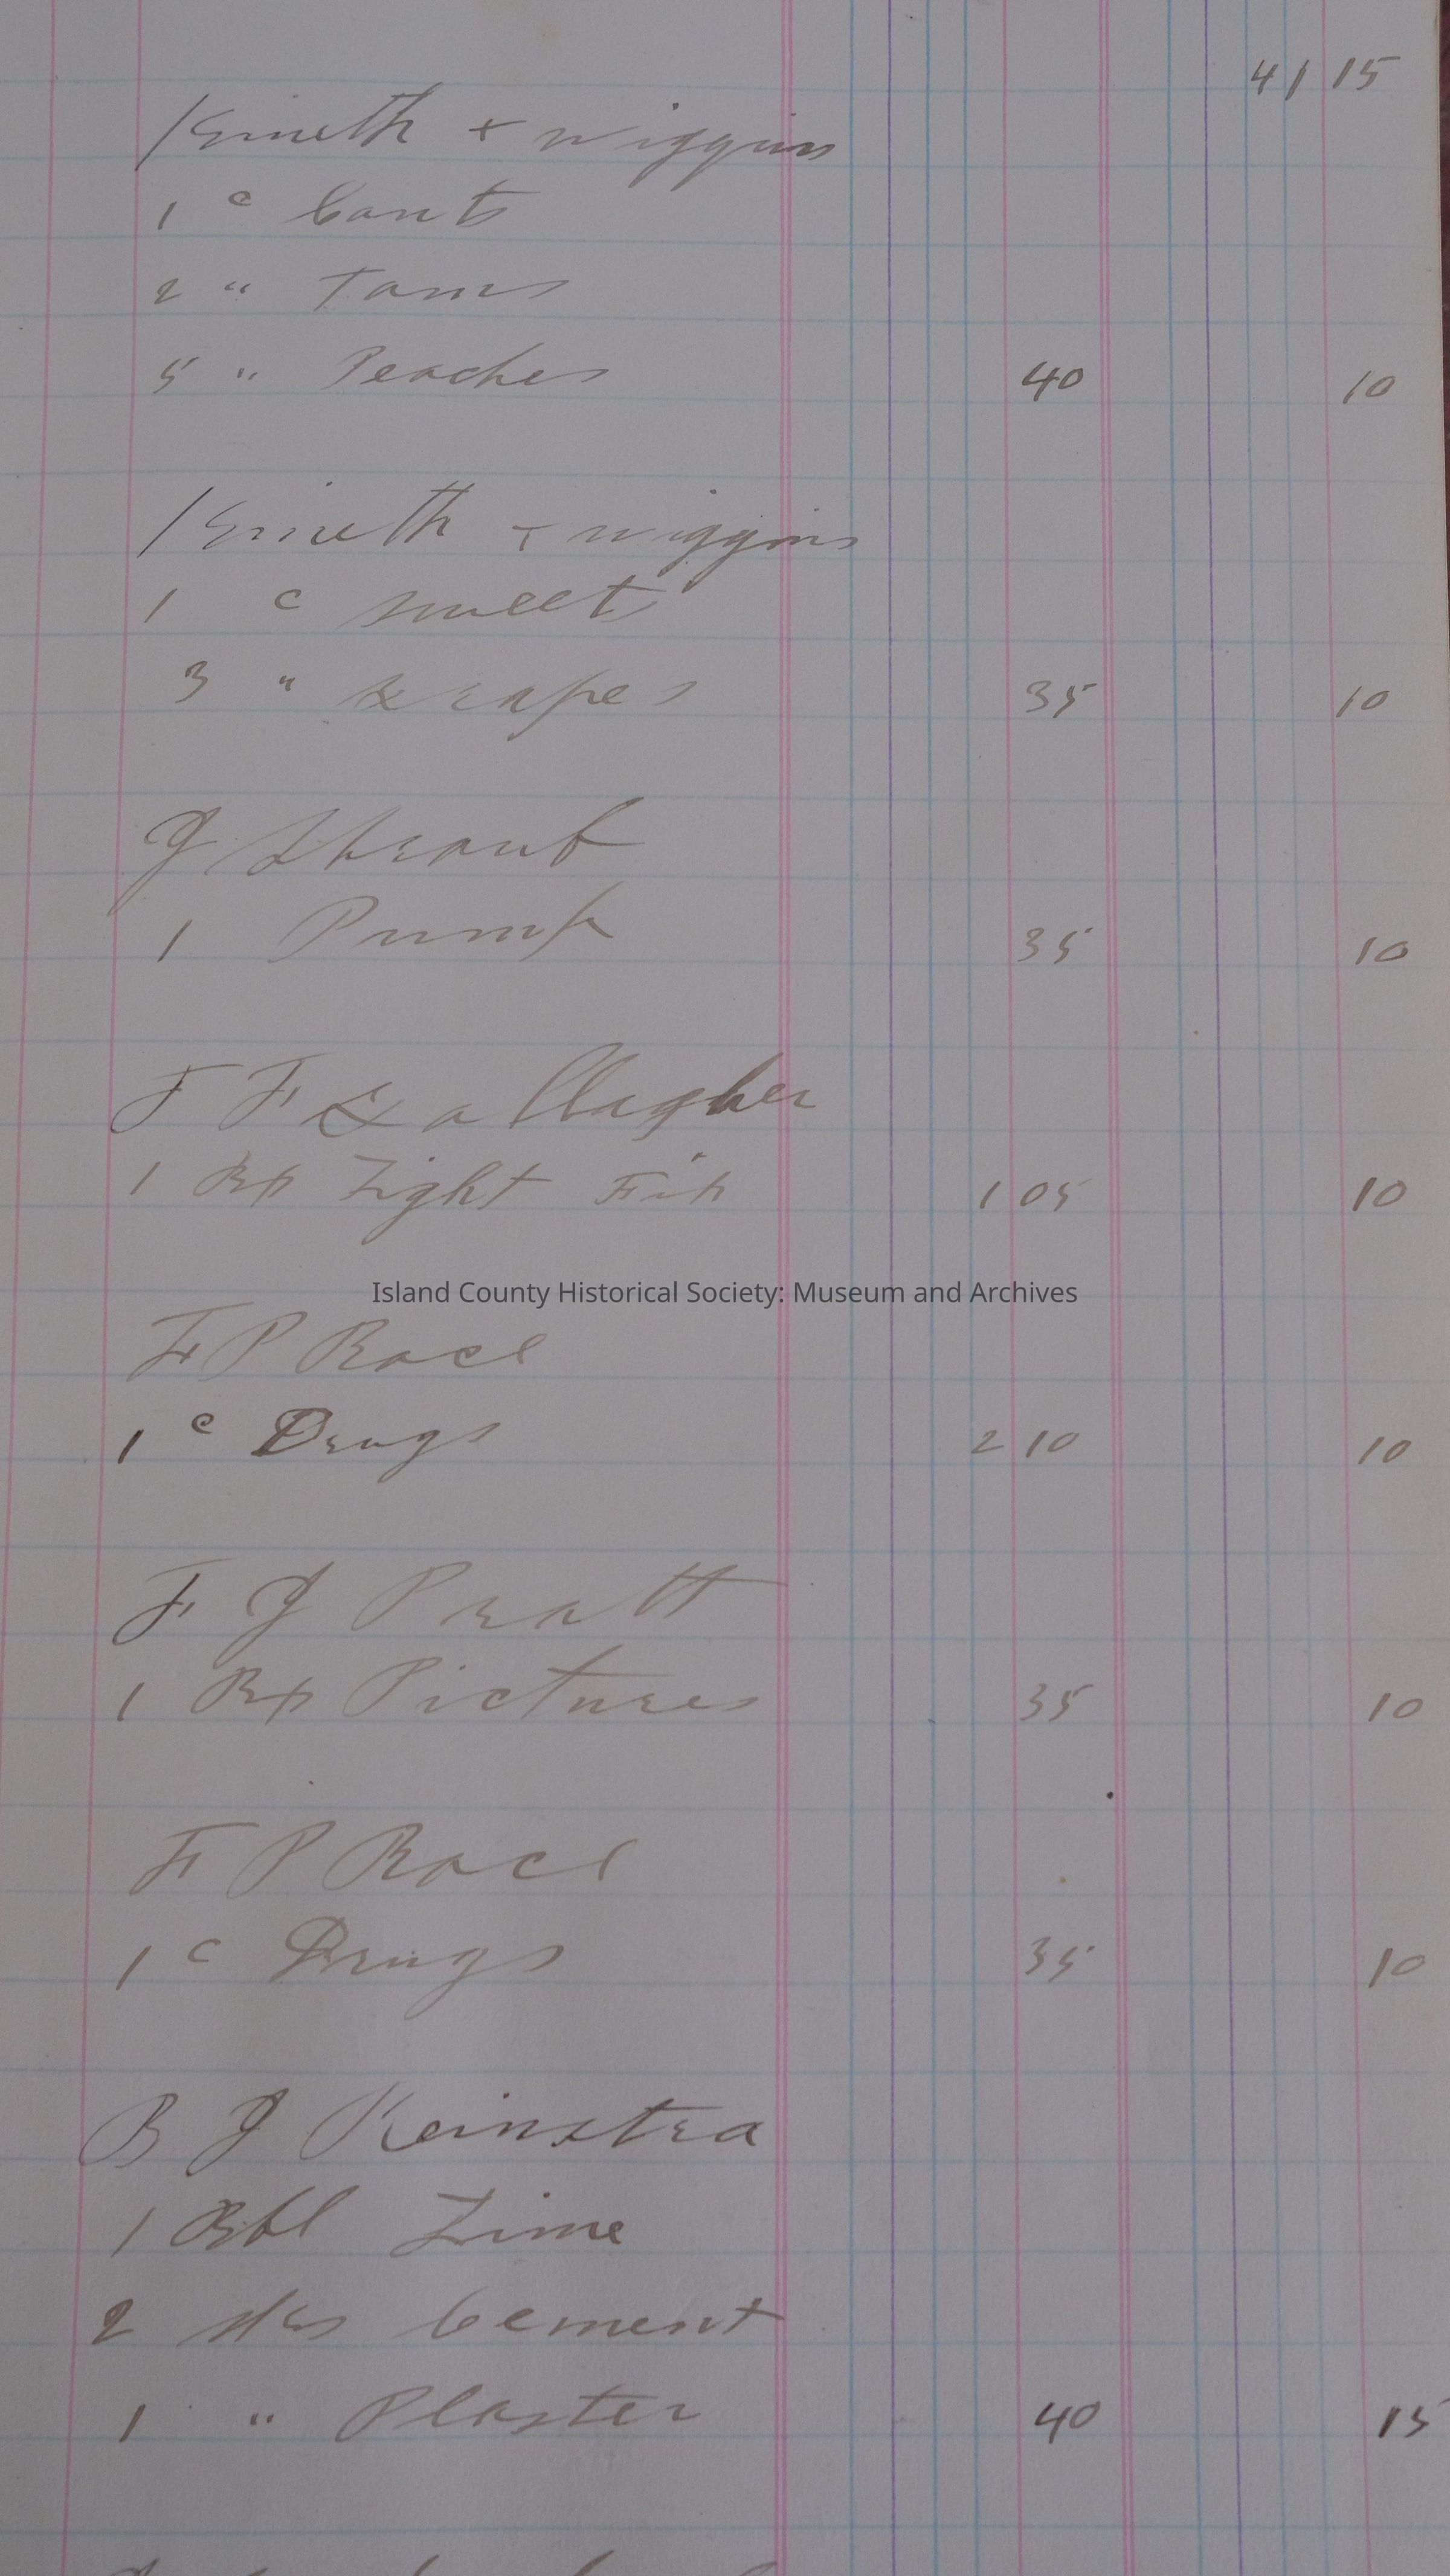 41 15
Kineth + wiggins
1 c Cants
2 " Toms
5 " Peaches 40 10
Kineth + wiggins
1 c sweets
3 " Grapes 35 10
J Straub
1 Pump 35 10
F F Gallagher
1 Bx Light Fix 1 05 10
Island County Historical Society: Museum and Archives
F P Race
1 c Drugs 2 10 10
F J Pratt
1 Bx Pictures 35 10
F P Race
1 c Drugs 35 10
B J Keinstra
1 Bbl Lime
2 sks Cement
1 " Plaster 40 15